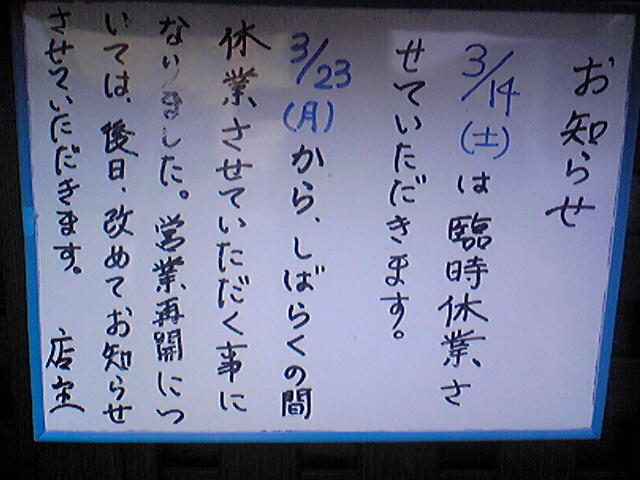 お知らせ
3/14(土)は臨時休業さ
せていただきます。
3/23(月)から、しばらくの間
休業させていただく事に
なりました。営業再開につ
いては、後日、改めてお知らせ
させていただきます。 店主